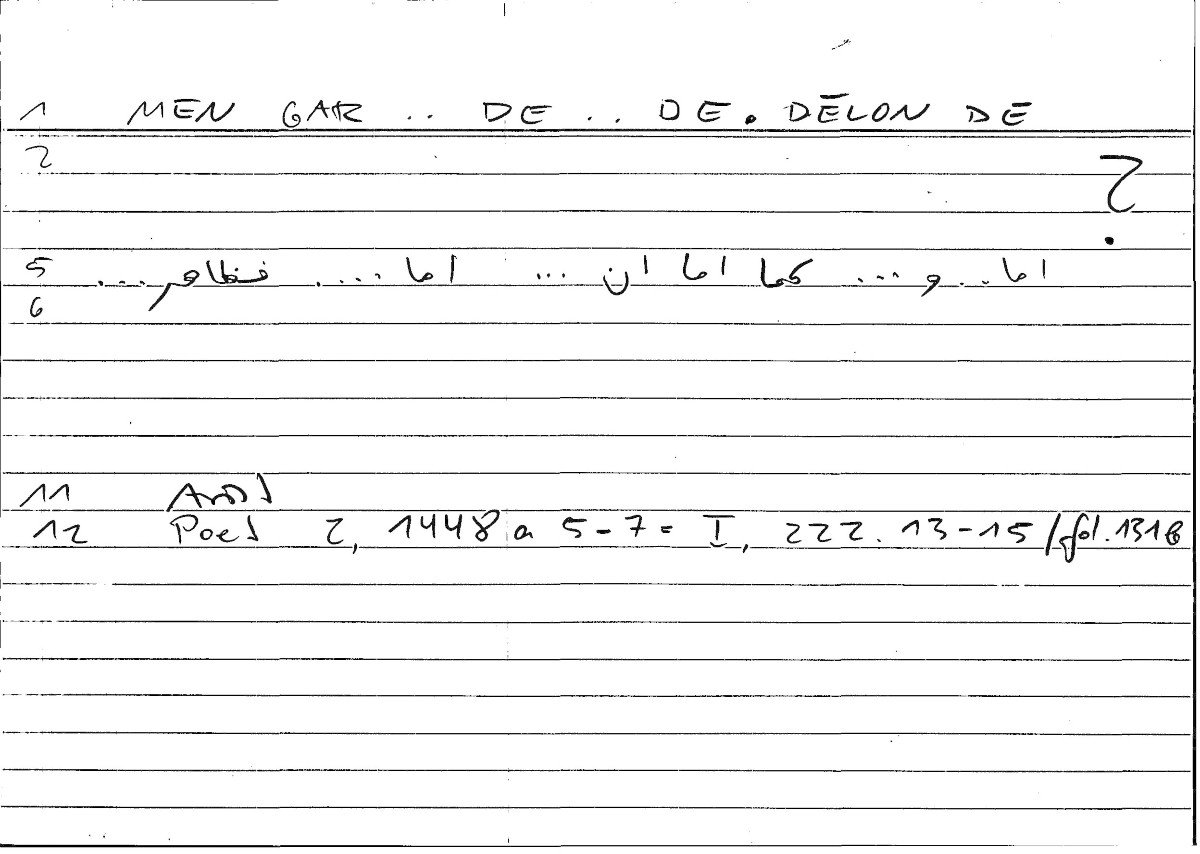 1 MEN GAR .. DE .. DE. DĒLON DE
2
?
5 اما .. و ... كما اما ان ... اما .... فظاهر ...
6
11
12 Poet 2, 1448 a 5-7 = I, 222. 13-15 / fol. 131b